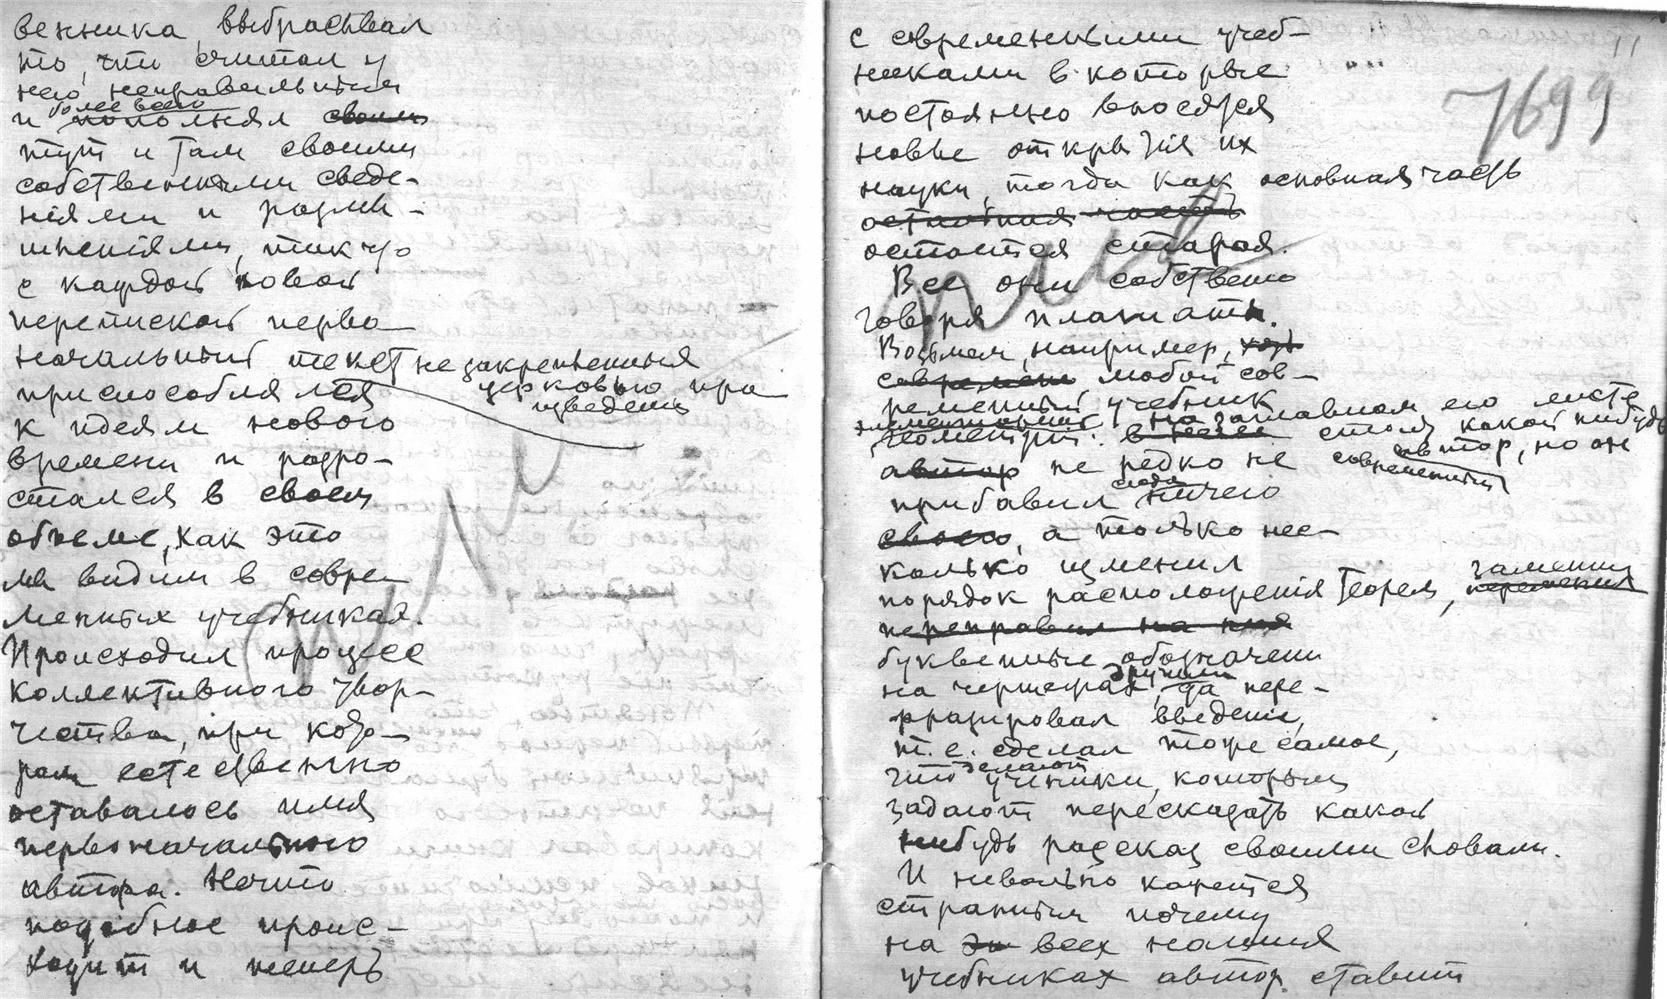 венника, выбрасывал
то, что считал у
него неправильным
более всего
и пополнял своими
тут и там своими
собственными сведе-
ніями и размы-
шленіями, так что
с каждой новой
перепиской перво-
начальный текст не закрепленныя
церковью про
изведения
приспособлялся
к идеям нового
времени и разро-
стался в своем
объеме, как это
мы видим в совре-
менных учебниках.
Происходил процесс
коллективного твор-
чества, при кото-
ром естественно
оставалось имя
первоначального
автора. Нечто
подобное проис-
ходит и теперь
11
7699
с современными учеб-
никами в которые
постоянно вносятся
новые открытия их
науки, тогда как основная часть
остальная часть
остается старая.
Все они собственно
говоря плагиаты.
Возьмем, например, хоть
современ любой сов-
ременный учебник
элементарной
геометріи: в на заглавном его листе
стоит какой нибудь
автор не редко не современный автор, но он
прибавил сюда ничего
своего, а только нес-
колько изменил
порядок расположенія теорем, заменил
переменил
переправил на
буквенные обозначени
на чертежах другими, да пере-
фразировал введеніе,
т.е. сделал тоже самое,
что делают ученики, которым
задают пересказать какой
нибудь рассказ своими словами.
И невольно кажется
странным почему
на эт всех наших
учебниках автор ставит